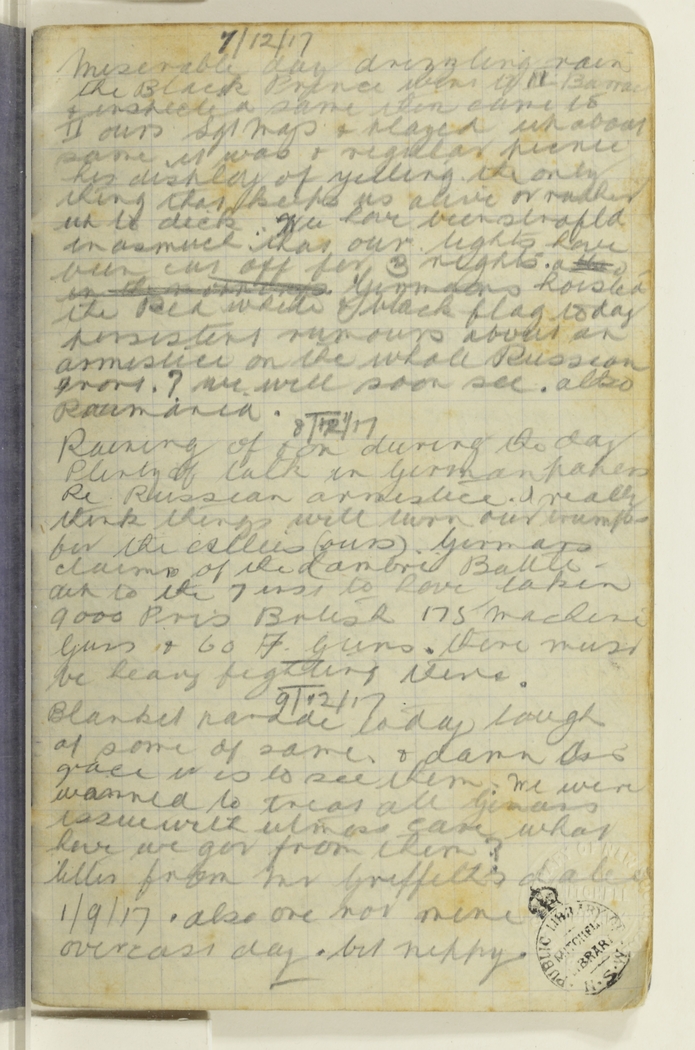 7/12/17
Miserable day drizzling rain
the Black Prince went to 11 Barrac
& inspected same then came to
II ours Sgt Maps & played up about
same it was a regular picnic
his display of yelling. the only
thing that keeps us alive or rather
up to deck. We have been strafed
inasmuch that our lights have
been cut off for 3 nights.
in the mornings. Germans hoisted
the Red white & black flag today
persistent rumours about an
armistice on the whole Russian
front. ? we will soon see. also
Roumania.
8/12/17
Raining off & on during the day
Plenty of talk in German papers
Re Russian armistice. I really
think things will turn out trumps
for the allies (ours). Germans
claims of the Cambrai Battle
up to the 7 inst to have taken
9000 Pris British 175 Machine
Guns & 60 F. Guns. there must
be heavy fighting there.
9/12/17
Blanket parade today tough
at some of same. & damn
grace it is to see them. We were
warned to treat all Germans
issue with utmost care, what
have we got from them?
letter from Mr Griffiths dated
1/9/17. also one not mine
overcast day. but nippy.
PUBLIC LIBRARY OF N.S.W.
MITCHELL
LIBRARY